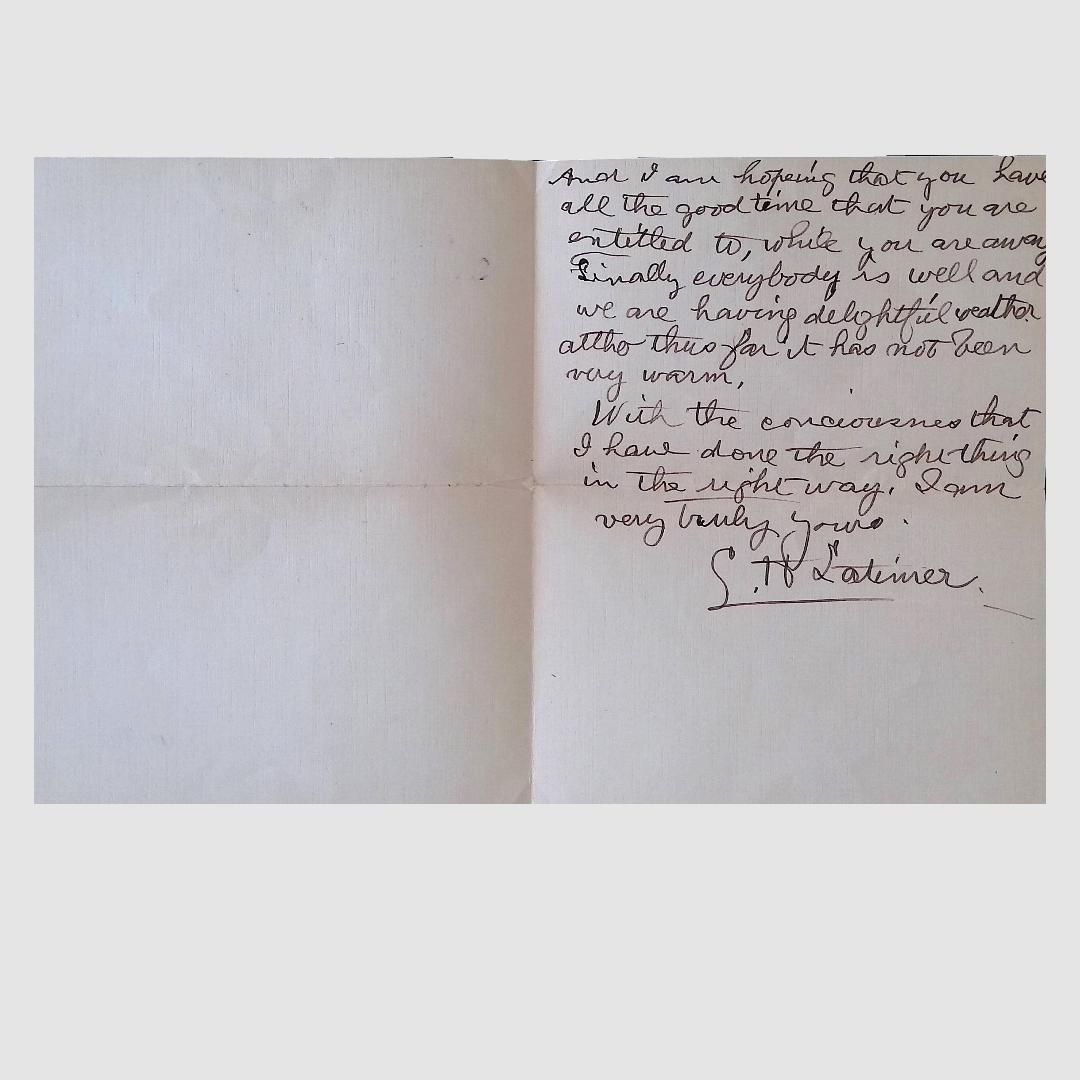 And I am hoping that you have
all the good time that you are
entitled to, while you are away
Finally everybody is well and
we are having delightful weather
altho thus far it has not been
very warm,
With the conciousness that
I have done the right thing
in the right way. I am
very truly yours.
L. H Latimer.